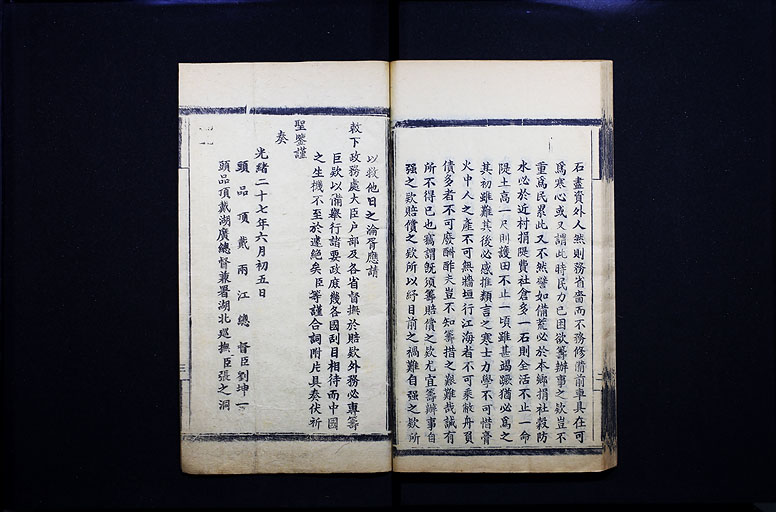 石盡資外人然則務省嗇而不務修備前車具在可
爲寒心或又謂此時民力已困欲籌辦事之欵豈不
重爲民累此又不然譬如備荒必於本鄉捐社穀防
水必於近村捐隄費社倉多一石則全活不止一命
隄土高一尺則護田不止一頃雖甚竭蹶猶必爲之
其初雖難其後必感推類言之寒士力學不可惜膏
火中人之產不可無牆垣行江海者不可乘敝舟負
債多者不可廢酬酢夫豈不知籌措之艱難哉誠有
所不得已也竊謂旣須籌賠償之欵尤宜籌辦事自
强之欵賠償之欵所以紓目前之禍難自强之欵所
以救他日之淪胥應請
敕下政務處大臣户部及各省督撫於賠欵外務必專籌
臣欵以備舉行諸要政庶幾各國刮目相待而中國
之生機不至於遽絕矣臣等謹合詞附片具奏伏祈
聖鑒謹
奏
光緒二十七年六月初五日
頭品頂戴兩江總督臣劉坤一
頭品頂戴湖廣總督兼署湖北巡撫臣張之洞